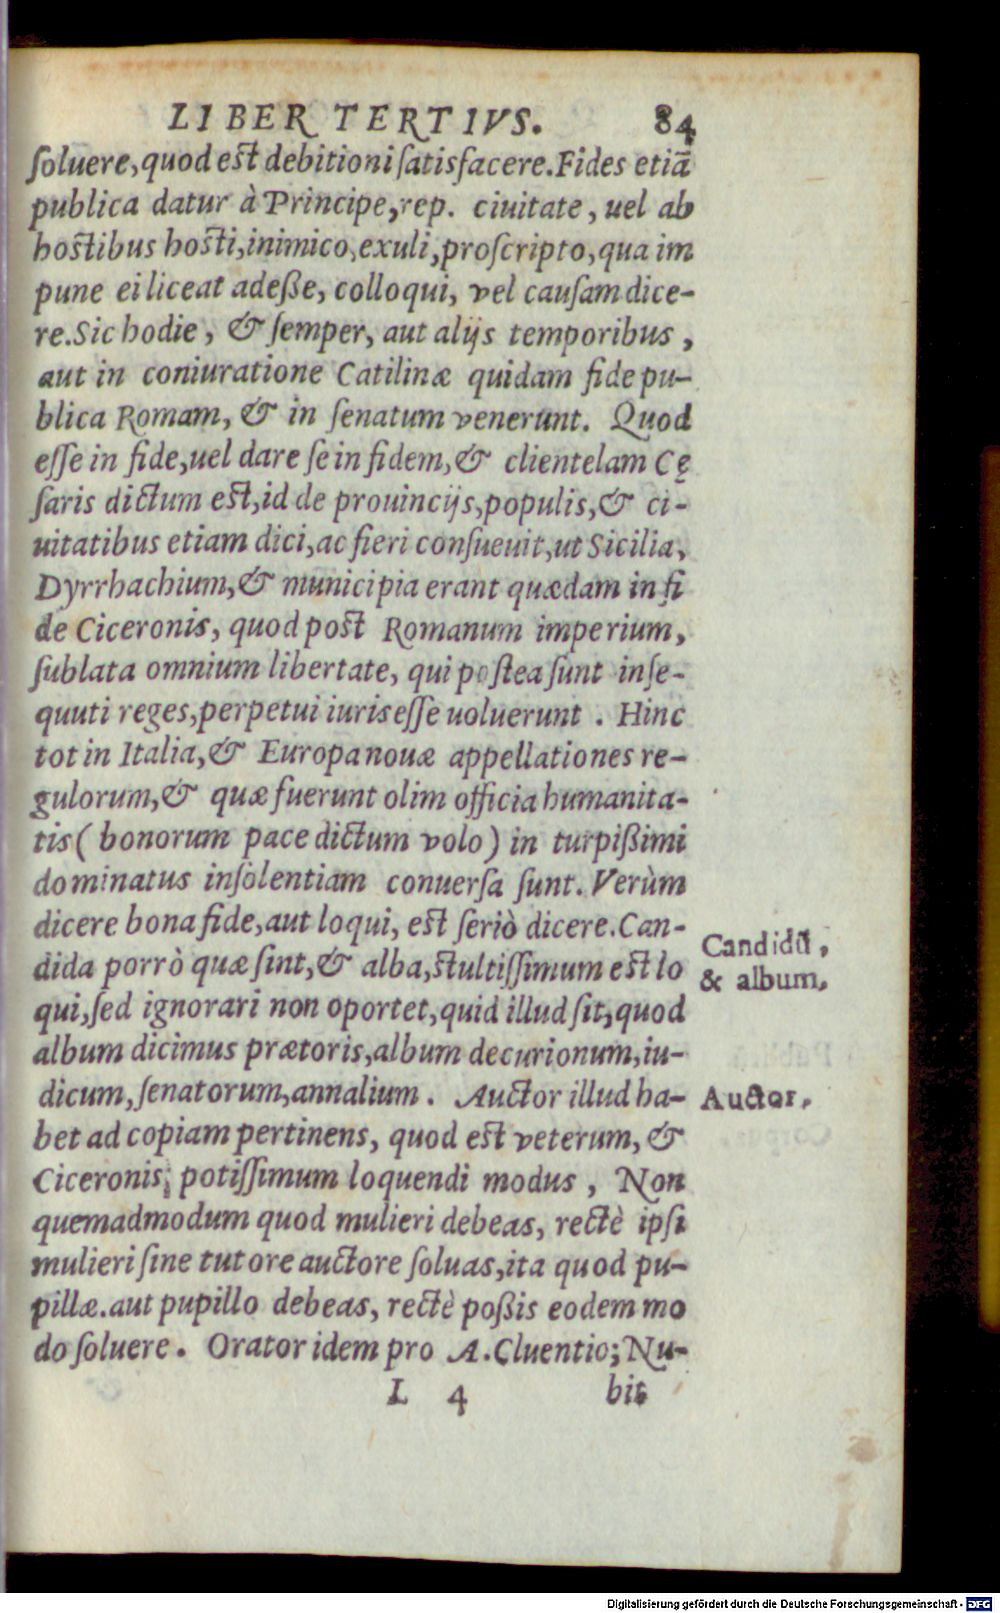 LIBER TERTIVS. 84
soluere, quod est debitioni satisfacere. Fides etiā
publica datur à Principe, rep. ciuitate, uel ab
hostibus hosti, inimico, exuli, proscripto, qua im
pune ei liceat adeße, colloqui, vel causam dice-
re. Sic hodie, & semper, aut alijs temporibus,
aut in coniuratione Catilinæ quidam fide pu-
blica Romam, & in senatum venerunt. Quod
esse in fide, uel dare se in fidem, & clientelam Cę
saris dictum est, id de prouincijs, populis, & ci-
uitatibus etiam dici, ac fieri consueuit, ut Sicilia,
Dyrrhachium, & municipia erant quædam in fi
de Ciceronis, quod post Romanum imperium,
sublata omnium libertate, qui postea sunt inse-
quuti reges, perpetui iuris esse uoluerunt . Hinc
tot in Italia, & Europa nouæ appellationes re-
gulorum, & quæ fuerunt olim officia humanita-
tis ( bonorum pace dictum volo ) in turpißimi
dominatus insolentiam conuersa sunt. Verùm
dicere bona fide, aut loqui, est seriò dicere. Can-
dida porrò quæ sint, & alba, stultissimum est lo
qui, sed ignorari non oportet, quid illud sit, quod
album dicimus prætoris, album decurionum, iu-
dicum, senatorum, annalium. Auctor illud ha-
bet ad copiam pertinens, quod est veterum, &
Ciceronis, potissimum loquendi modus, Non
quemadmodum quod mulieri debeas, rectè ipsi
mulieri sine tutore auctore soluas, ita quod pu-
pillæ. aut pupillo debeas, rectè poßis eodem mo
do soluere. Orator idem pro A. Cluentio; Nu-
L 4 bit
Candidū,
& album.
Auctor.
Digitalisierung gefördert durch die Deutsche Forschungsgemeinschaft - DFG